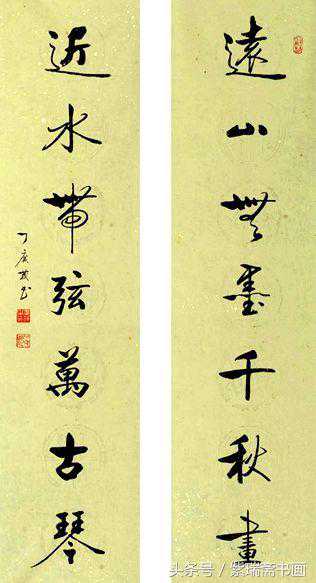 遠山無墨千秋畫
近水帶弦萬古琴
头条号/紫瑞斋书画